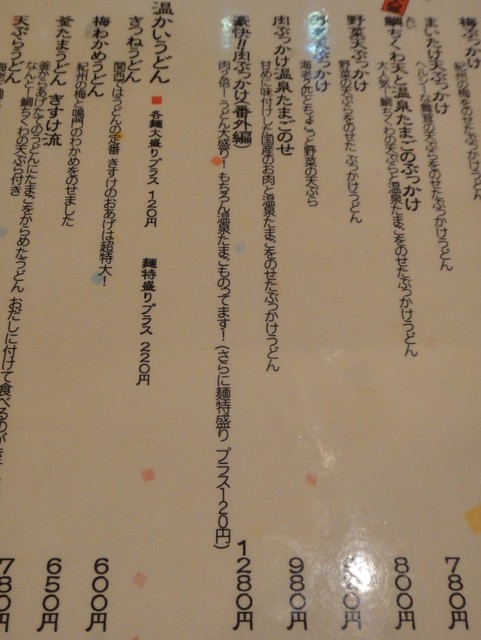 梅ぶっかけ
紀州の梅をのせたぶっかけうどん
まいたけ天ぶっかけ
ヘルシーな舞茸の天ぷらをのせたぶっかけうどん
780円
鯛ちくわ天と温泉たまごのぶっかけ
大人気!鯛ちくわの天ぷらと温泉たまごをのせたぶっかけうどん
800円
野菜天ぶっかけ
野菜の天ぷらをのせたぶっかけうどん
ぶっかけ
海老二匹とちょこっと野菜の天ぷら
980円
肉ぶっかけ温泉たまごのせ
甘めに味付けした国産のお肉と温泉たまごをのせたぶっかけうどん
豪快!!肉ぶっかけ(番外編)
肉2倍!うどん大盛り!もちろん温泉たまごものってます!(さらに麺特盛り プラス120円)
1280円
温かいうどん
各麺大盛りプラス 120円
麺特盛りプラス 220円
きつねうどん
関西ではうどんの定番 きすけのおあげは超特大!
梅わかめうどん
紀州の梅と鳴門のわかめをのせました
600円
釜たまうどん きすけ流
釜からあげたてのうどんにたまごをからめたうどん おだしに付けて食べるのが
なんと!鯛ちくわの天ぷら付き
650円
天ぷらうどん
780円